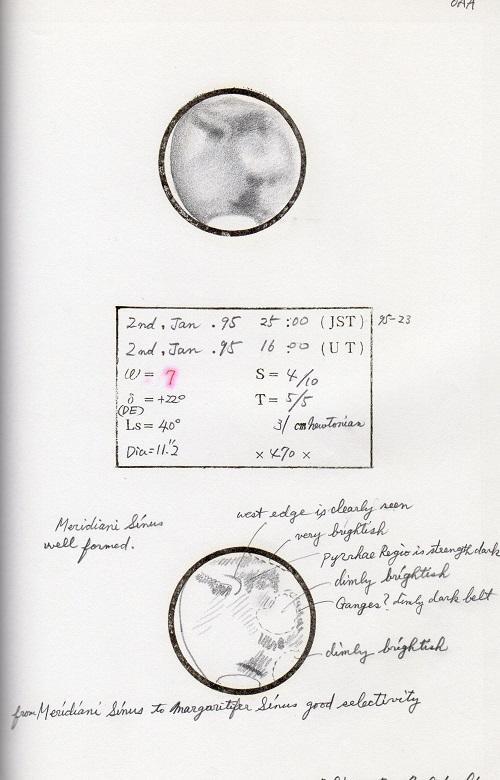 OAA
2nd, Jan .95 25:00 (JST) 95-23
2nd, Jan .95 16:00 (UT)
ω = 7 S = 4/10
δ = +22° T = 5/5
(DE)
Ls = 40° 31 cm Newtonian
Dia = 11."2 × 470 ×
west edge is clearly seen
Meridiani Sinus
well formed.
very brightish
Pyrrhae Regio is strength dark
dimly brightish
Ganges? dimly dark belt
dimly brightish
from Meridiani Sinus to Margaritifer Sinus good selectivity